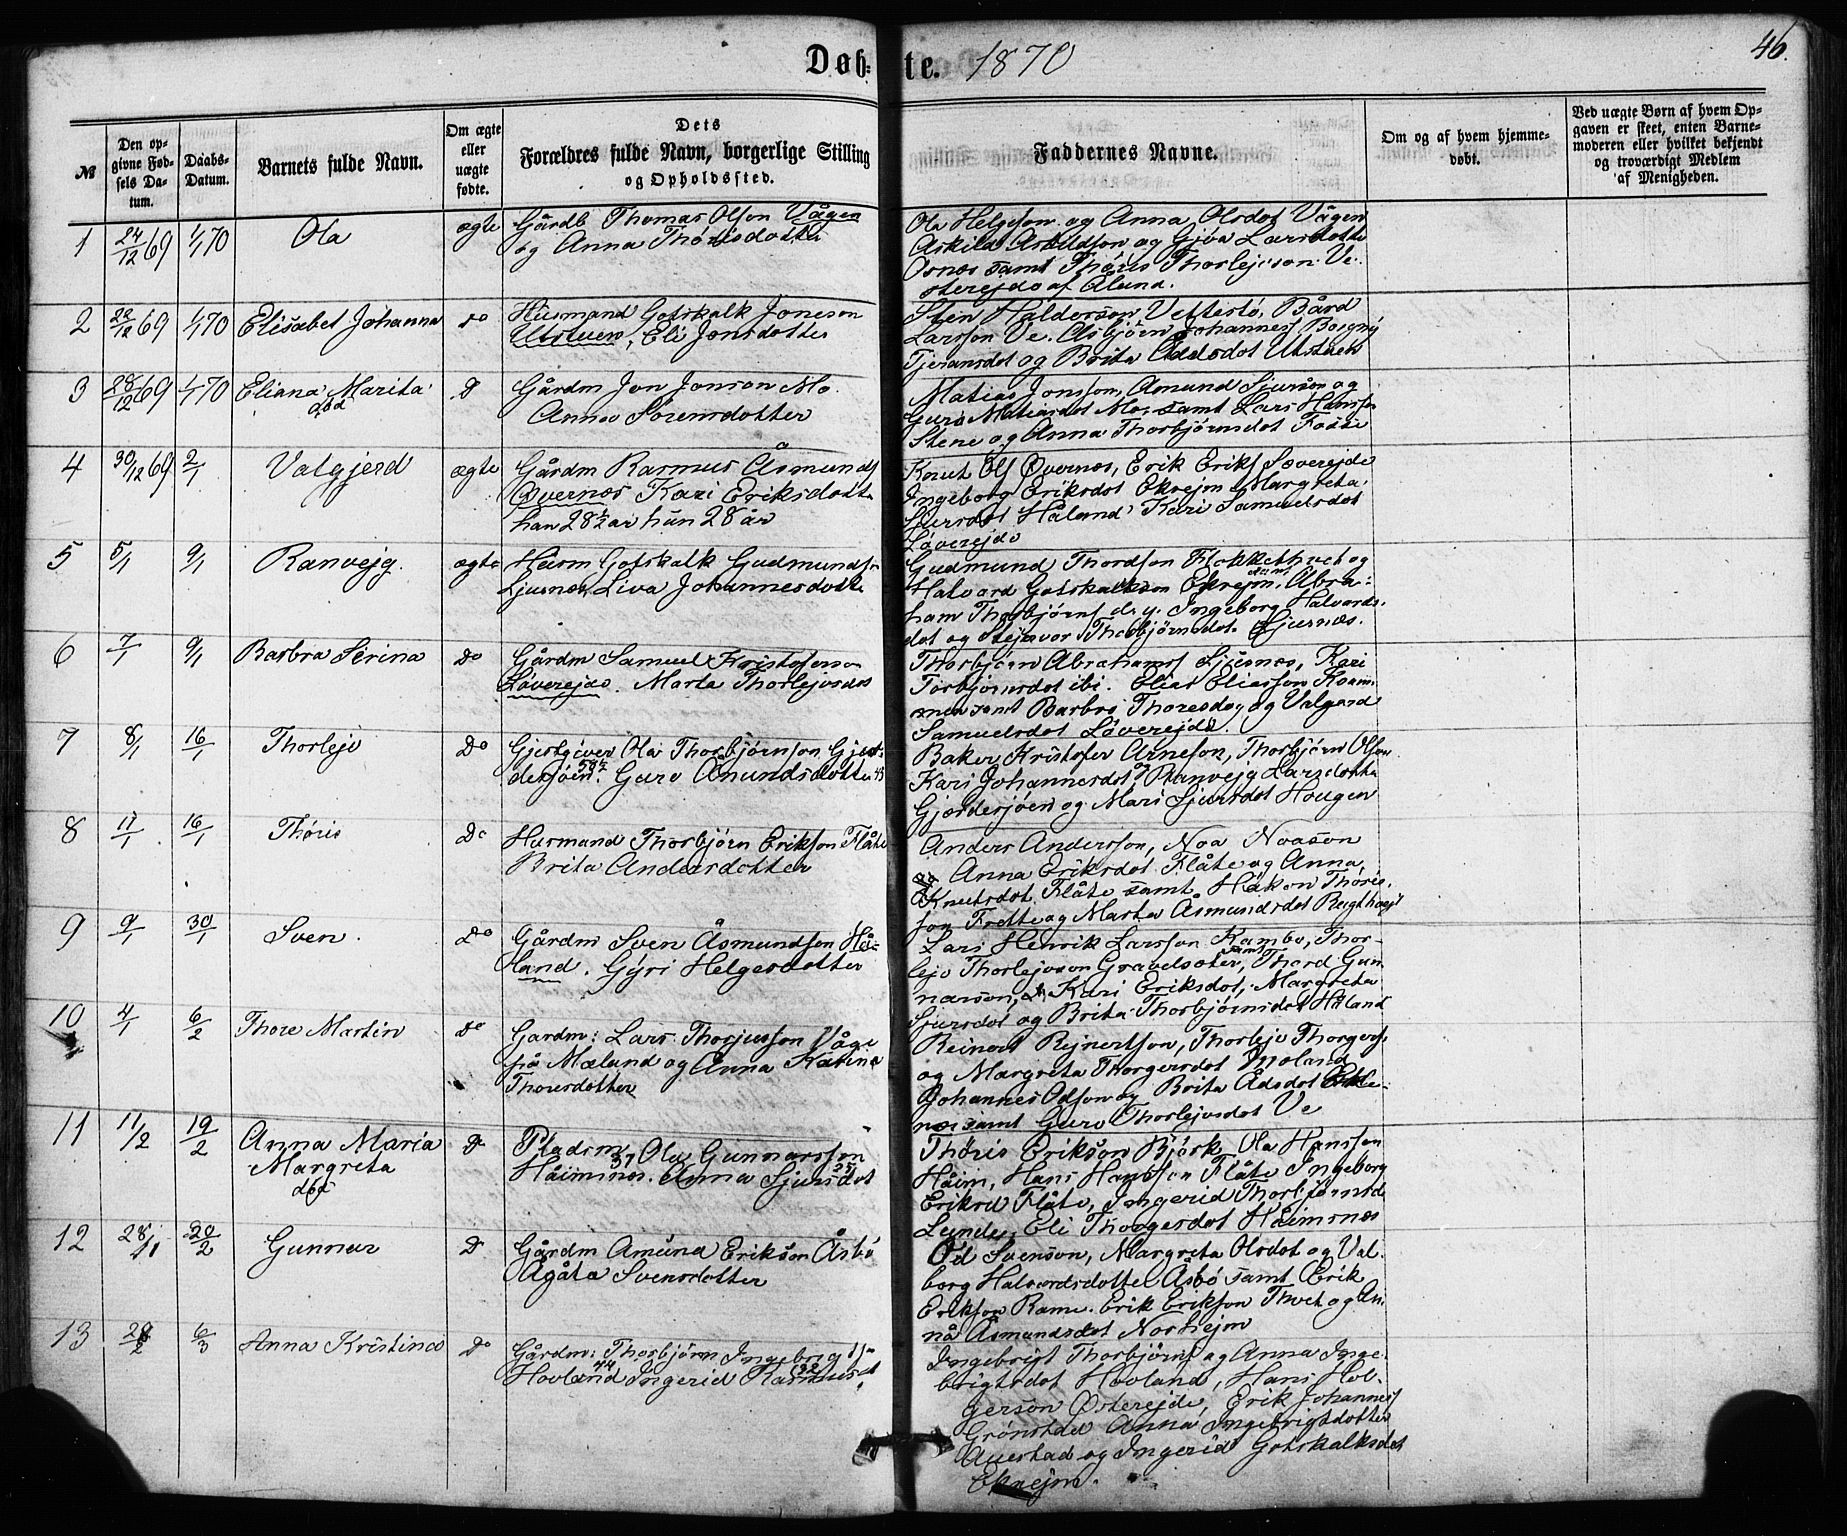 Døbte. 1870
46.
№
Den opgivne Fødsels Datum.
Daabs-Datum.
Barnets fulde Navn.
Om ægte eller uægte fødte.
Dets Forældres fulde Navn, borgerlige Stilling og Opholdssted.
Faddernes Navne.
Om og af hvem hjemmedøbt.
Ved uægte Børn af hvem Opgaven er skeet, enten Barnemoderen eller hvilket bekjendt og troværdigt Medlem af Menigheden.
1 24/12 69 1/1 70 Ola ægte
Gårdb Thomas Olson Vågen
og Anna Thørisdotter
Ola Helgson og Anna Olsdot Vågen
Askild Askildson og Gjøa Larsdotte
Osnes samt Thøris Thorlejvson Ve
sterejde af Ølund.
2 28/12 69 1/1 70 Elisabet Johanna do
Husmand Gotskalk Joneson
Utstuen, Eli Jonsdotter
Sten Halderson Vettestø, Bård
Larsson Ve. Asbjørn Johannes Borgny
Tjeransdot og Brita Oddsdot Utstuen
3 28/12 69 1/1 70 Eliana Marita D
dbd
Gårdm Jon Jonson Mo.
Anna Sørensdotter
Matias Jonsson, Åmund Sjurson og
Guro Matiasdot Mo, samt Lars Hansson
Stene og Anna Thorbjørnsdot Fosse
4 30/12 69 2/1 Valgjerd ægte
Gårdm Rasmus Åsmunds
Øvernes Kari Eriksdotte
han 28 1/2 år hun 28 år
Knut Ols Øvernes, Erik Eriks Sæverejde
Ingeborg Eriksdot Ekrejm Margreta
Sjursdot Håland Kari Samuelsdot
Løverejde
5 5/1 9/1 Ranvejg. ægte
Husm Gotskalk Gudmundsn
Ljusnes, Liva Johannesdotte
Gudmund Thordson Flokkethvet og
Halvard Gotskalkson Ekrejm samt Abra-
ham Thorbjørns d. y. Ingeborg Halvards-
dot og Stejnvor Thorbjørnsdot. Ljusnes.
6 7/1 9/1 Barbra Serina Do
Gårdm Samuel Kristoferso
Løverejde. Marta Thorlejvsdot
Thorbjørn Abrahams Ljusnes, Kari
Torbjørnsdot ibi. Elias Eliasson
samt Barbro Thoresdo, og Valgerd
Samuelsdot Løverejde.
7 8/1 16/1 Thorlejv Do
Gjestgiver Ola Thorbjørnson Gjer-
desjøen. Guro Åmundsdotter 45
Baker Kristofer Arneson, Thorbjørn Olson
Kari Johannesdot og Ranvejg Larsdotte
Gjerdesjøen og Mari Sjursdot Hougen
8 11/1 16/1 Thøris Do
Husmand Thorbjørn Erikson Flåte
Brita Andersdotter
Anders Anderson, Noa Noason
og Anna Eriksdot Flåte og Anna
Knutsdot Flåte samt Håkon Thøris-
son Frette og Marta Åsmundsdot
9 9/1 30/1 Sven. Do
Gårdm Sven Åsmundson Hå-
land. Gyri Helgesdotter
Lars Henrik Larsson Rambo, Thor-
lejv Thorlejvson Gravelsæter, samt Thord Gun-
narson, Kari Eriksdot, Margreta
Sjursdot og Brita Thorbjørnsdot Håland
10 4/1 6/2 Thore Martin Do
Gardm: Lars Thorjusson Våge
på Mæland og Anna Karina
Thoresdotter
Reinert Rejnertson, Thorlejv Thorgers
og Margreta Thorgersdot Mæland
Johannes Odson og Brita Odsdot
nes samt Guro Thorlejvsdot Ve
11 11/2 19/2 Anna Maria D
Margreta
dbd
Pladsm Ola 37 Gunnarsson
Håimnes. Anna Sjursdot
Thøris Erikson Bjørk, Ola Hansson
Håim, Hans Hansson Flåte Ingeborg
Eriksd Flåte, Ingerid Thorbjørnsd
Lunde, Eli Thorgersdot Håimsnes
12 28/11 20/2 Gunnar D
Gårdm Åmund Erikson Åsbø
Agåta Svensdotter
Od Svenson, Margreta Olsdot og Val-
borg Halvordsdotter Åsbø samt Erik
Erikson Rame. Erik Erikson Thvet og An-
nå Åsmundsdot Norhejm
13 6/3 Anna Kristina Do
Gårdm: Thorbjørn Ingebrigts
Hovland 44 Ingerid Rasmusd 32
Ingebrigt Thorbjørns og Anna Inge-
brigtsdot Hovland, Hans Hol-
gerson Østerejde, Erik Johanness
Grønstad Anna Ingebrigtdotter
Auestad og Ingerid Gotskalksdot
Ekrejm.